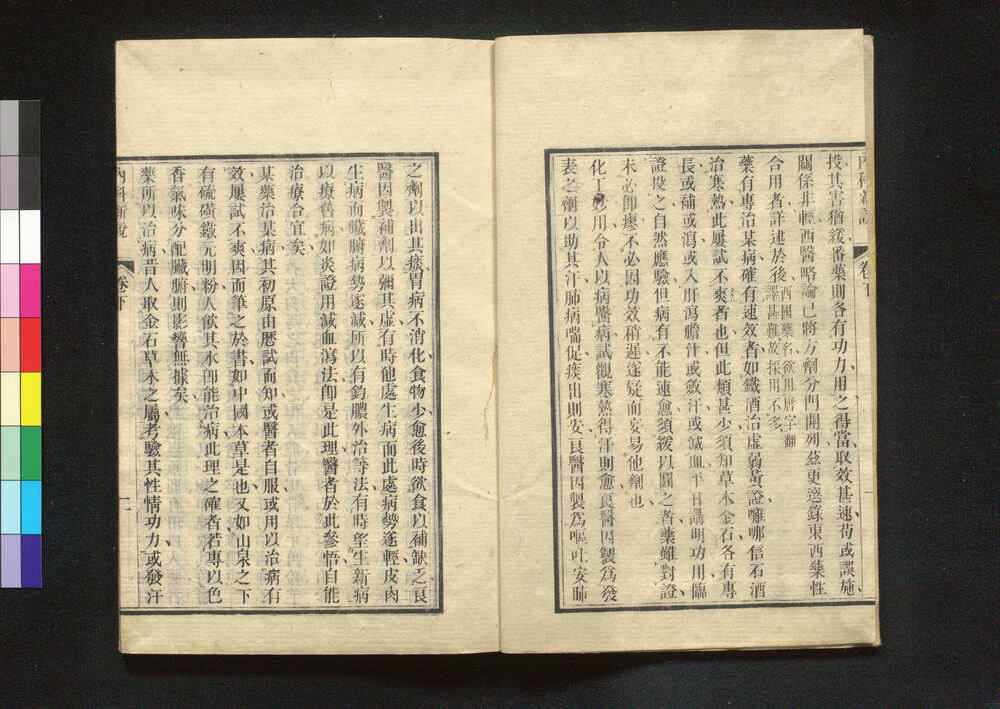 投其害猶緩番藥則各有功力用之得當取效甚速苟或誤施
關係非輕西醫略論已將方劑分門開列茲更選錄東西藥性
合用者詳述於後西國藥名欲用唐字翻譯甚難故採用不多
藥有專治某病確有速效者如鐵酒治虛弱黃證囉哪信石酒
治寒熱此屢試不爽者也但此類甚少須知草木金石各有專
長或補或瀉或入肝瀉膽汁或斂汗或減血平日講明功用臨
證投之自然應驗但病有不能速愈須緩以圖之者藥雖對證
未必卽瘳不必因功效稍遲遂疑而妄易他劑也
化工妙用令人以病醫病試觀寒熱得汗則愈良醫因製為發
表之劑以助其汗肺病喘促痰出則安良醫因製為嘔吐安肺
之劑以出其痰胃病不消化食物少愈後時欲食以補缺乏良
醫因製補劑以彌其虛有時他處生病而此處病勢遂輕皮肉
生病而臟腑病勢遂減所以有釣膿外治等法有時望生新病
以療舊病如炎證用減血瀉法卽是此理醫者於此參悟自能
治療合宜矣
某藥治某病其初原由歷試而知或醫者自服或用以治病有
效屢試不爽因而筆之於書如中國本草是也又如山泉之下
有硫磺鐵元明粉人飲其水卽能治病此理之確者若專以色
香氣味分配臟腑則影響無據矣
藥所以治病昔人取金石草木之屬考驗其性情功力或發汗
內科新說 卷下 二